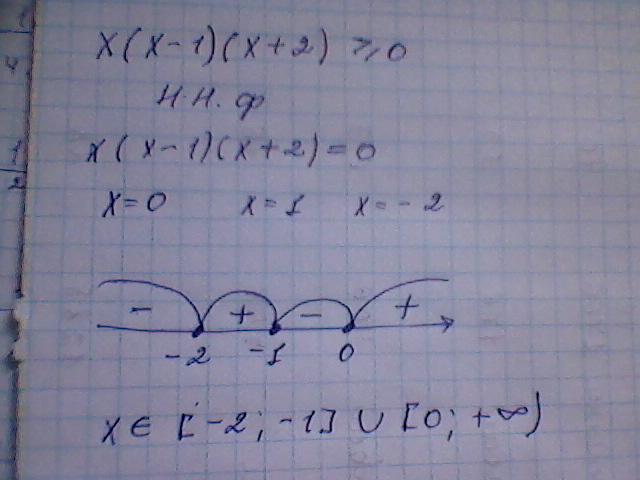 x(x-1)(x+2) ⩾ 0
Н.Н.ф
x(x-1)(x+2)=0
x=0 x=1 x=-2
- + - +
-2 -1 0
x∈[-2; -1]∪[0; +∞)